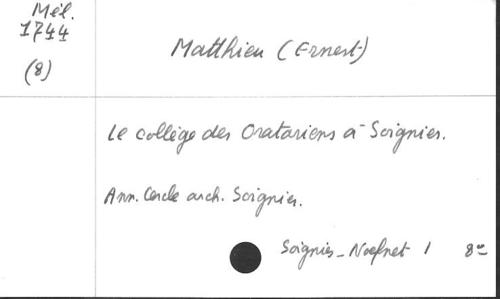 Mél.
1744
(8)
Matthieu (Ernest)
Le collège des Oratoriens à Soignies.
Ann. Cercle arch. Soignies.
Soignies - 1 8°